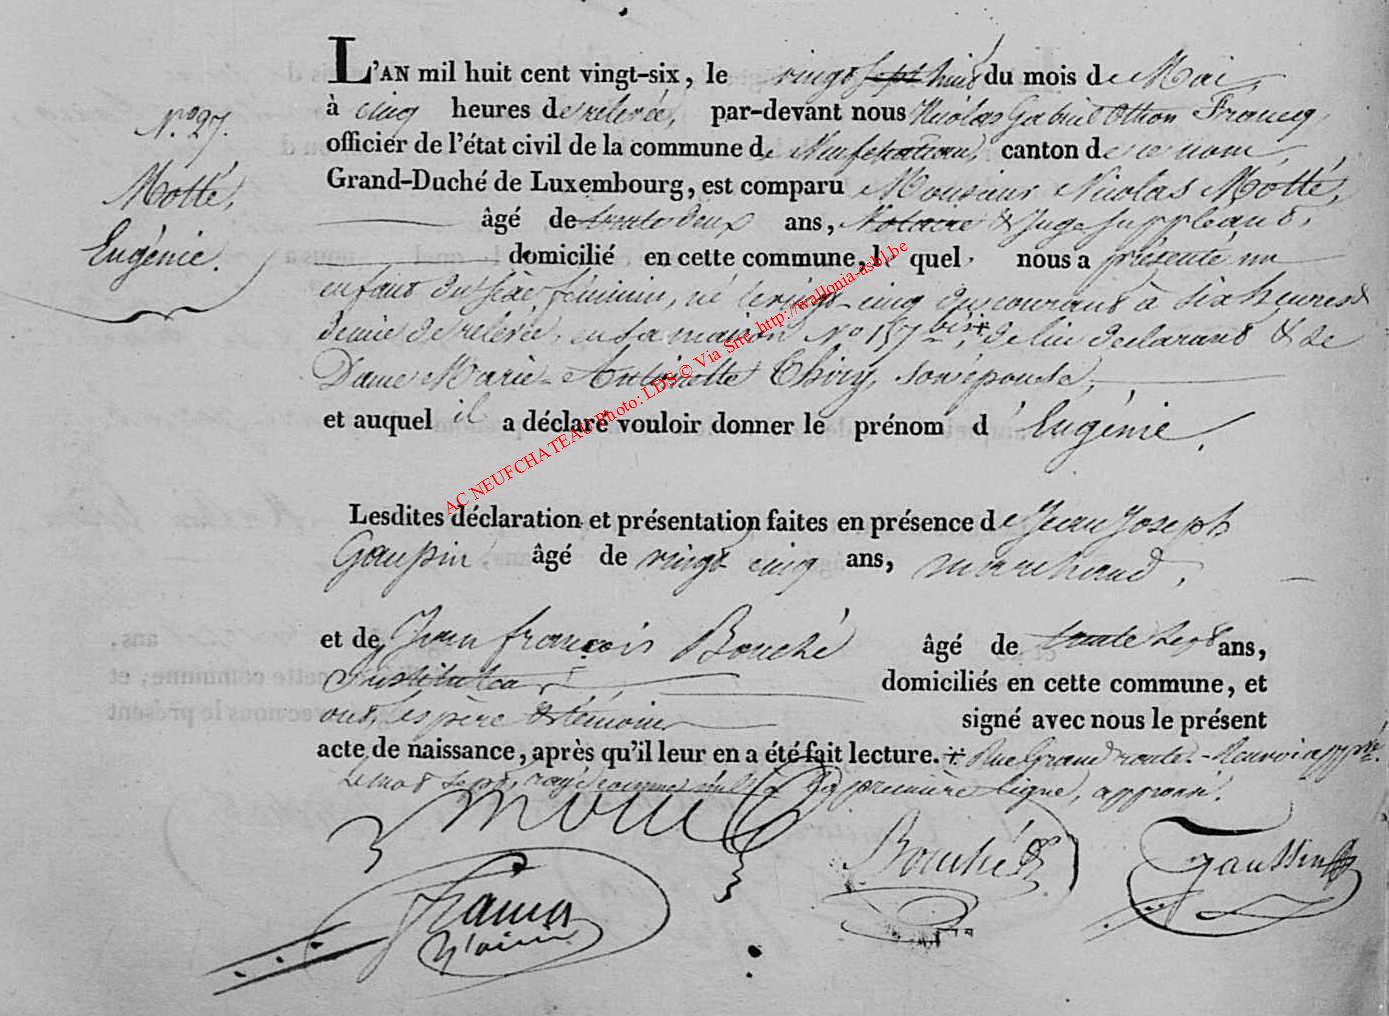 L'AN mil huit cent vingt-six, le vingt sept huit du mois de Mai,
à cinq heures de relevée, par-devant nous Nicolas Gabriel Othon Francq,
officier de l'état civil de la commune de Neufchateau, canton de ce nom,
Grand-Duché de Luxembourg, est comparu Monsieur Nicolas Motté,
âgé de trente deux ans, Notaire & Juge suppléant,
domicilié en cette commune, le quel nous a présenté un
enfant du sexe féminin, né le vingt-cinq du courant à six heures &
demie de relevée, en sa maison No 157 bis + de lui déclarant & de
Dame Marie-Antoinette Thiry, son épouse,
et auquel il a déclaré vouloir donner le prénom d'Eugénie.
Lesdites déclaration et présentation faites en présence de Jean Joseph
Gaussin âgé de vingt cinq ans, marchand,
et de Jean françois Bouché âgé de trente sept ans,
Instituteur, domiciliés en cette commune, et
ont, les père & témoins signé avec nous le présent
acte de naissance, après qu'il leur en a été fait lecture. + Rue Grand route. Renvoi appvé.
Le mot sept, rayé comme nul à la première ligne, approuvé.
No 27.
Motté,
Eugénie.
Motté
Bouché
Gaussin
Francq
AC NEUFCHATEAU Photo: LDS © Via Site http://wallonia-asbl.be